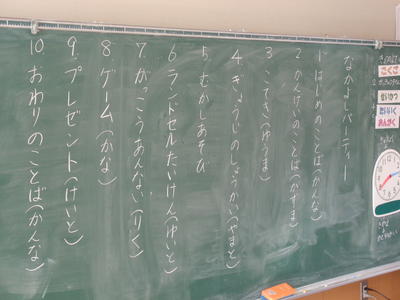 なかよしパーティー
1. はじめのことば(かんな)
2. かんげいのことば(かずま)
3. こてき(ゆうま)
4. ぎょうじのしょうかい(やまと)
5. むかしあそび
6. ランドセルたいけん(ゆいと)
7. がっこうあんない(りく)
8. ゲーム(かな)
9. プレゼント(けいと)
10. おわりのことば(かんな)
こくご
せいかつ
たいいく
おんがく